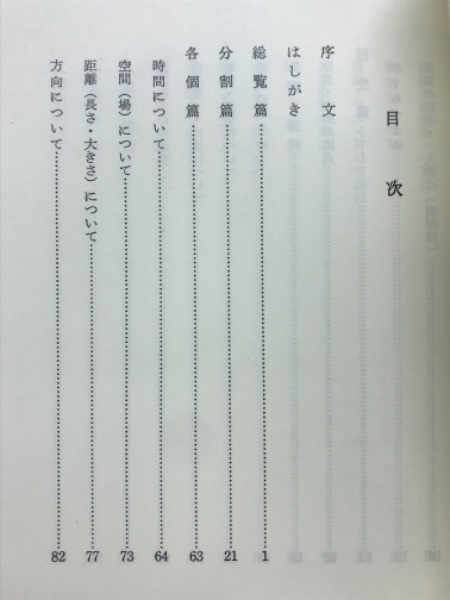 目次
序文
はしがき
総覧篇……………………1
分割篇……………………21
各個篇……………………63
時間について……………………64
空間（場）について……………………73
距離（長さ・大きさ）について……………………77
方向について……………………82